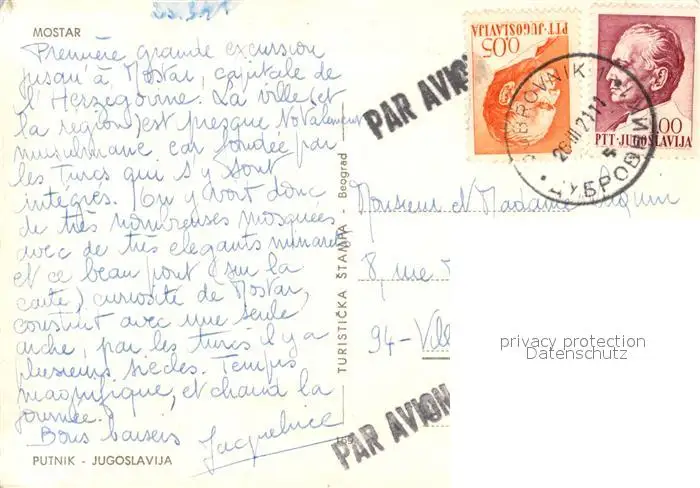 MOSTAR
Première grande excursion
jusqu'à Mostar, capitale de
l'Herzégovine. La ville (et
la région) est presque totalement
musulmane car fondée par
les Turcs qui s'y sont
intégrés. On y voit donc
de très nombreuses mosquées
avec de très élégants minarets
et ce beau pont (sur la
carte) curiosité de Mostar,
construit avec une seule
arche, par les turcs il y a
plusieurs siècles. Temps
magnifique, et chaud la
journée.
Bons baisers
Jacqueline
PUTNIK - JUGOSLAVIJA
TURISTIČKA ŠTAMPA - Beograd
PAR AVION
PTT-JUGOSLAVIJA
0.05
1.00
PTT-JUGOSLAVIJA
DUBROVNIK 1
ДУБРОВНИК
Monsieur et Madame
8, rue
94-Vill
privacy protection
Datenschutz
PAR AVION